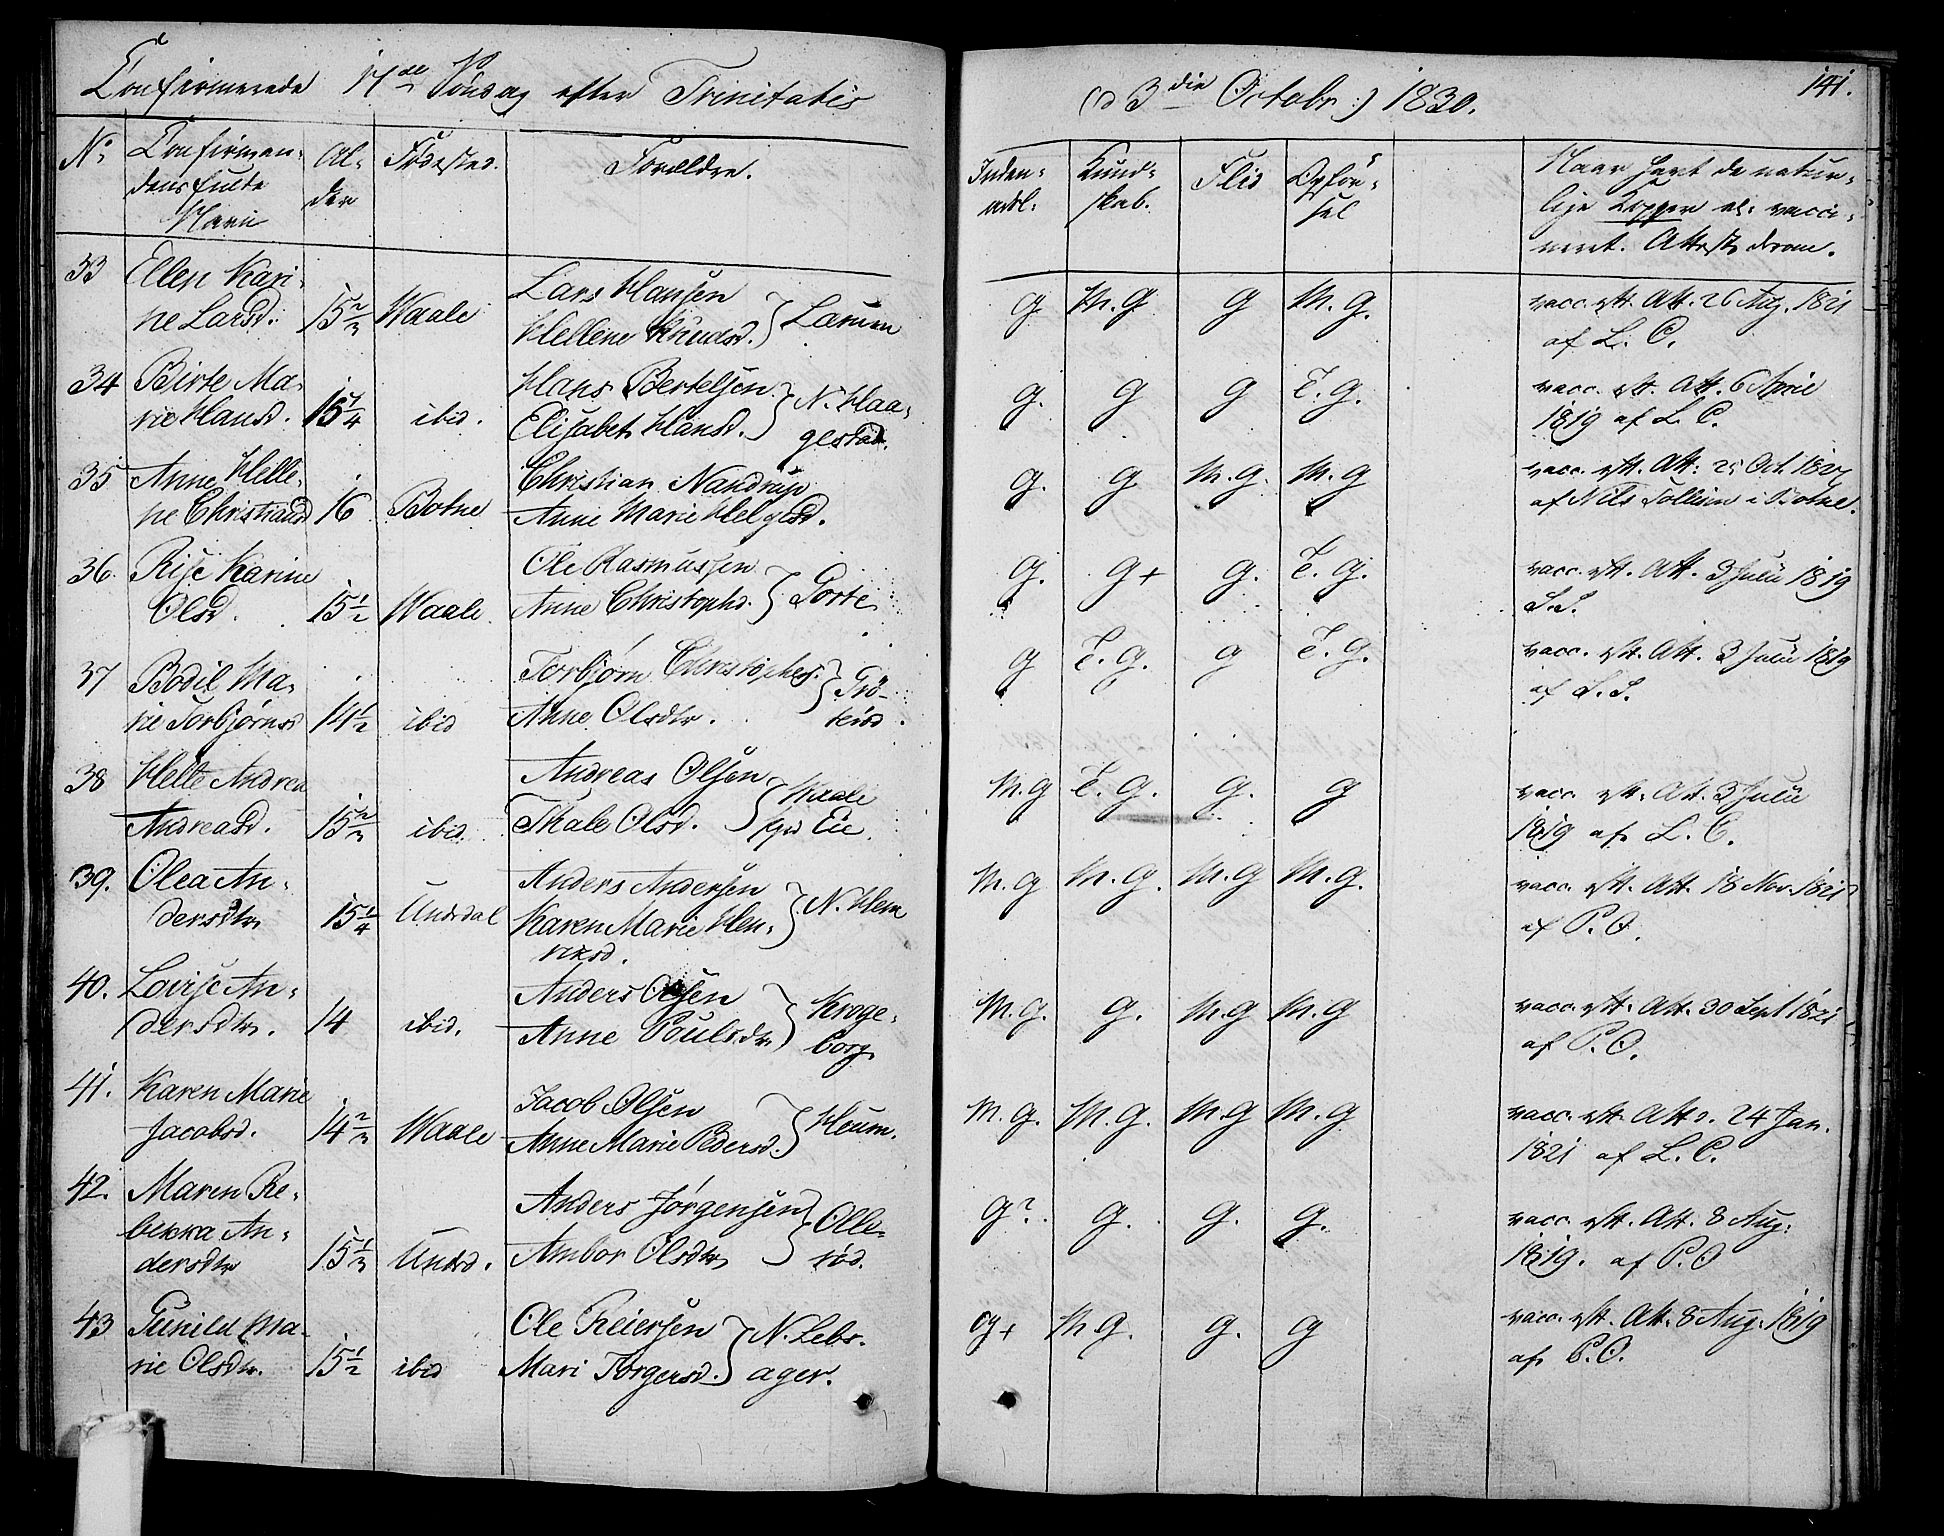 Confirmerede 17de Søndag efter Trinitatis
(d 3die Octobr:) 1830.
141.
No
Confirman-
dens fulde
Navn
Al-
der
Fødested.
Forældre.
Inden-
adl.
Kund-
skab.
Flid
Opfør-
sel
Naar havt de natur-
lige Kopper el. vacci-
neret. Attest derom.
33 Ellen Kari-
ne Larsd. 15 2/3 Waale
Lars Hansen
Hellene Knudsd. } Lamen
g M.g g M.g.
vacc. Att. 26 Aug. 1821
af L. C.
34 Birte Ma-
rie Hansd. 15 1/4 ibid.
Hans Bertelsen
Elisabet Hansd. } N. Haa-
gestad.
g. g g T.g.
vacc. Att. 6 April
1819 af L. C.
35 Anne Helle-
ne Christiansd 16 Botne
Christian Nandrup
Anne Marie Helgesd.
g. g M.g. M.g
vacc. Att: 25 Oct. 1827
af Nils Sollien i Botne.
36. Rise Karine
Olsd. 15 1/2 Waale.
Ole Rasmussen
Anne Christophd. } Gorte
g. g+ g. T.g.
vacc. Att. 3 Julii 1819
S.S.
37 Bodil Ma-
rie Torbjørnsd 14 1/2 ibid
Torbjørn Christophers.
Anne Olsdtr. }
g T.g. g T.g.
vacc. Att. 3 Julii 1819
af S.S.
38 Helle Andrea
Andreasd. 15 2/3 ibid.
Andreas Olsen
Thale Olsd. } Waale
Eie.
M.g T.g. g. g
vacc. Att. 3 Julii
1819 af L. C.
39. Olea An-
dersdtr 15 1/4 Undrdal
Anders Andersen
Karen Marie Hen-
riksd. } N. Hem
M.g M.g. M.g M.g.
vacc. Att. 18 Nov. 1821
af P.O.
40. Lovise An-
dersdtr. 14 ibid.
Anders Olsen
Anne Poulsdtr } Kroge-
borg.
M.g. g. M.g M.g
vacc. Att. 30 Sept 1821
af P.O.
41. Karen Marie
Jacobsd. 14 2/3 Waale
Jacob Olsen
Anne Marie Pedersd. } Heum.
M.g. M.g. M.g M.g
vacc. Att. 24 Jan.
1821 af L. C.
42. Maren Re-
bekka An-
dersdtr 15 1/3 Undrd.
Anders Jørgensen
Ambor Olsdtr } Olle-
rød.
g?. g. g. g.
vacc. Att. 8 Aug.
1819. af P.O
43 Gunild Ma-
rie Olsdtr. 15 1/2 ibid
Ole Reiersen
Mari Torgersd. } N. Lebs-
ager.
g+ M g. g. g
vacc. Att. 8 Aug. 1819
af P.O.